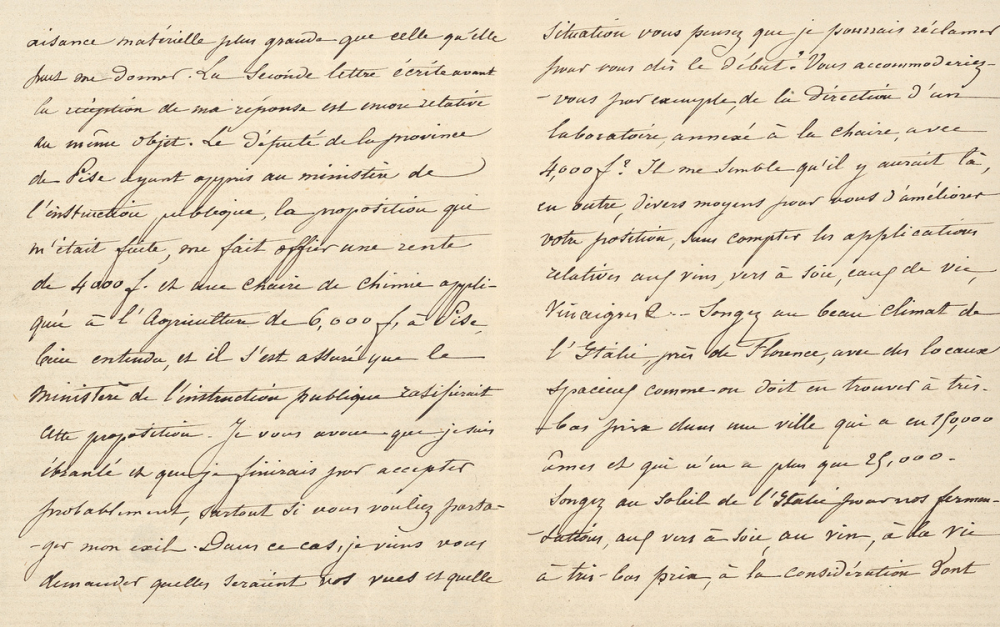 aisance matérielle plus grande que celle qu'elle
peut me donner. La seconde lettre écrite avant
la réception de ma réponse est encore relative
au même objet. Le député de la province
de Pise ayant appris au ministère de
l'instruction publique, la proposition qui
m'était faite, me fait offrir une rente
de 4000 f. et une chaire de chimie appli-
quée à l'Agriculture de 6,000 f, à Pise,
bien entendu, et il s'est assuré que le
ministère de l'instruction publique ratifierait
cette proposition. Je vous avoue que je suis
ébranlé et que je finirais par accepter
probablement, surtout si vous vouliez parta-
-ger mon exil. Dans ce cas, je viens vous
demander quelles seraient vos vues et quelle
situation vous pensez que je pourrais réclamer
pour vous dès le début? Vous accommoderiez-
-vous par exemple, de la direction d'un
laboratoire, annexé à la chaire, avec
4,000 f? Il me semble qu'il y aurait là,
en outre, divers moyens pour vous d'améliorer
votre position, sans compter les applications
relatives aux vins, vers à soie, eaux de vie,
vinaigres &... Songez au beau climat de
l'Italie, près de Florence, avec des locaux
spacieux comme on doit en trouver à très-
bas prix dans une ville qui a eu 150,000
âmes et qui n'en a plus que 25,000.
Songez au soleil de l'Italie pour nos fermen-
-tations, aux vers à soie au vin, à la vie
à très-bas prix, à la considération dont